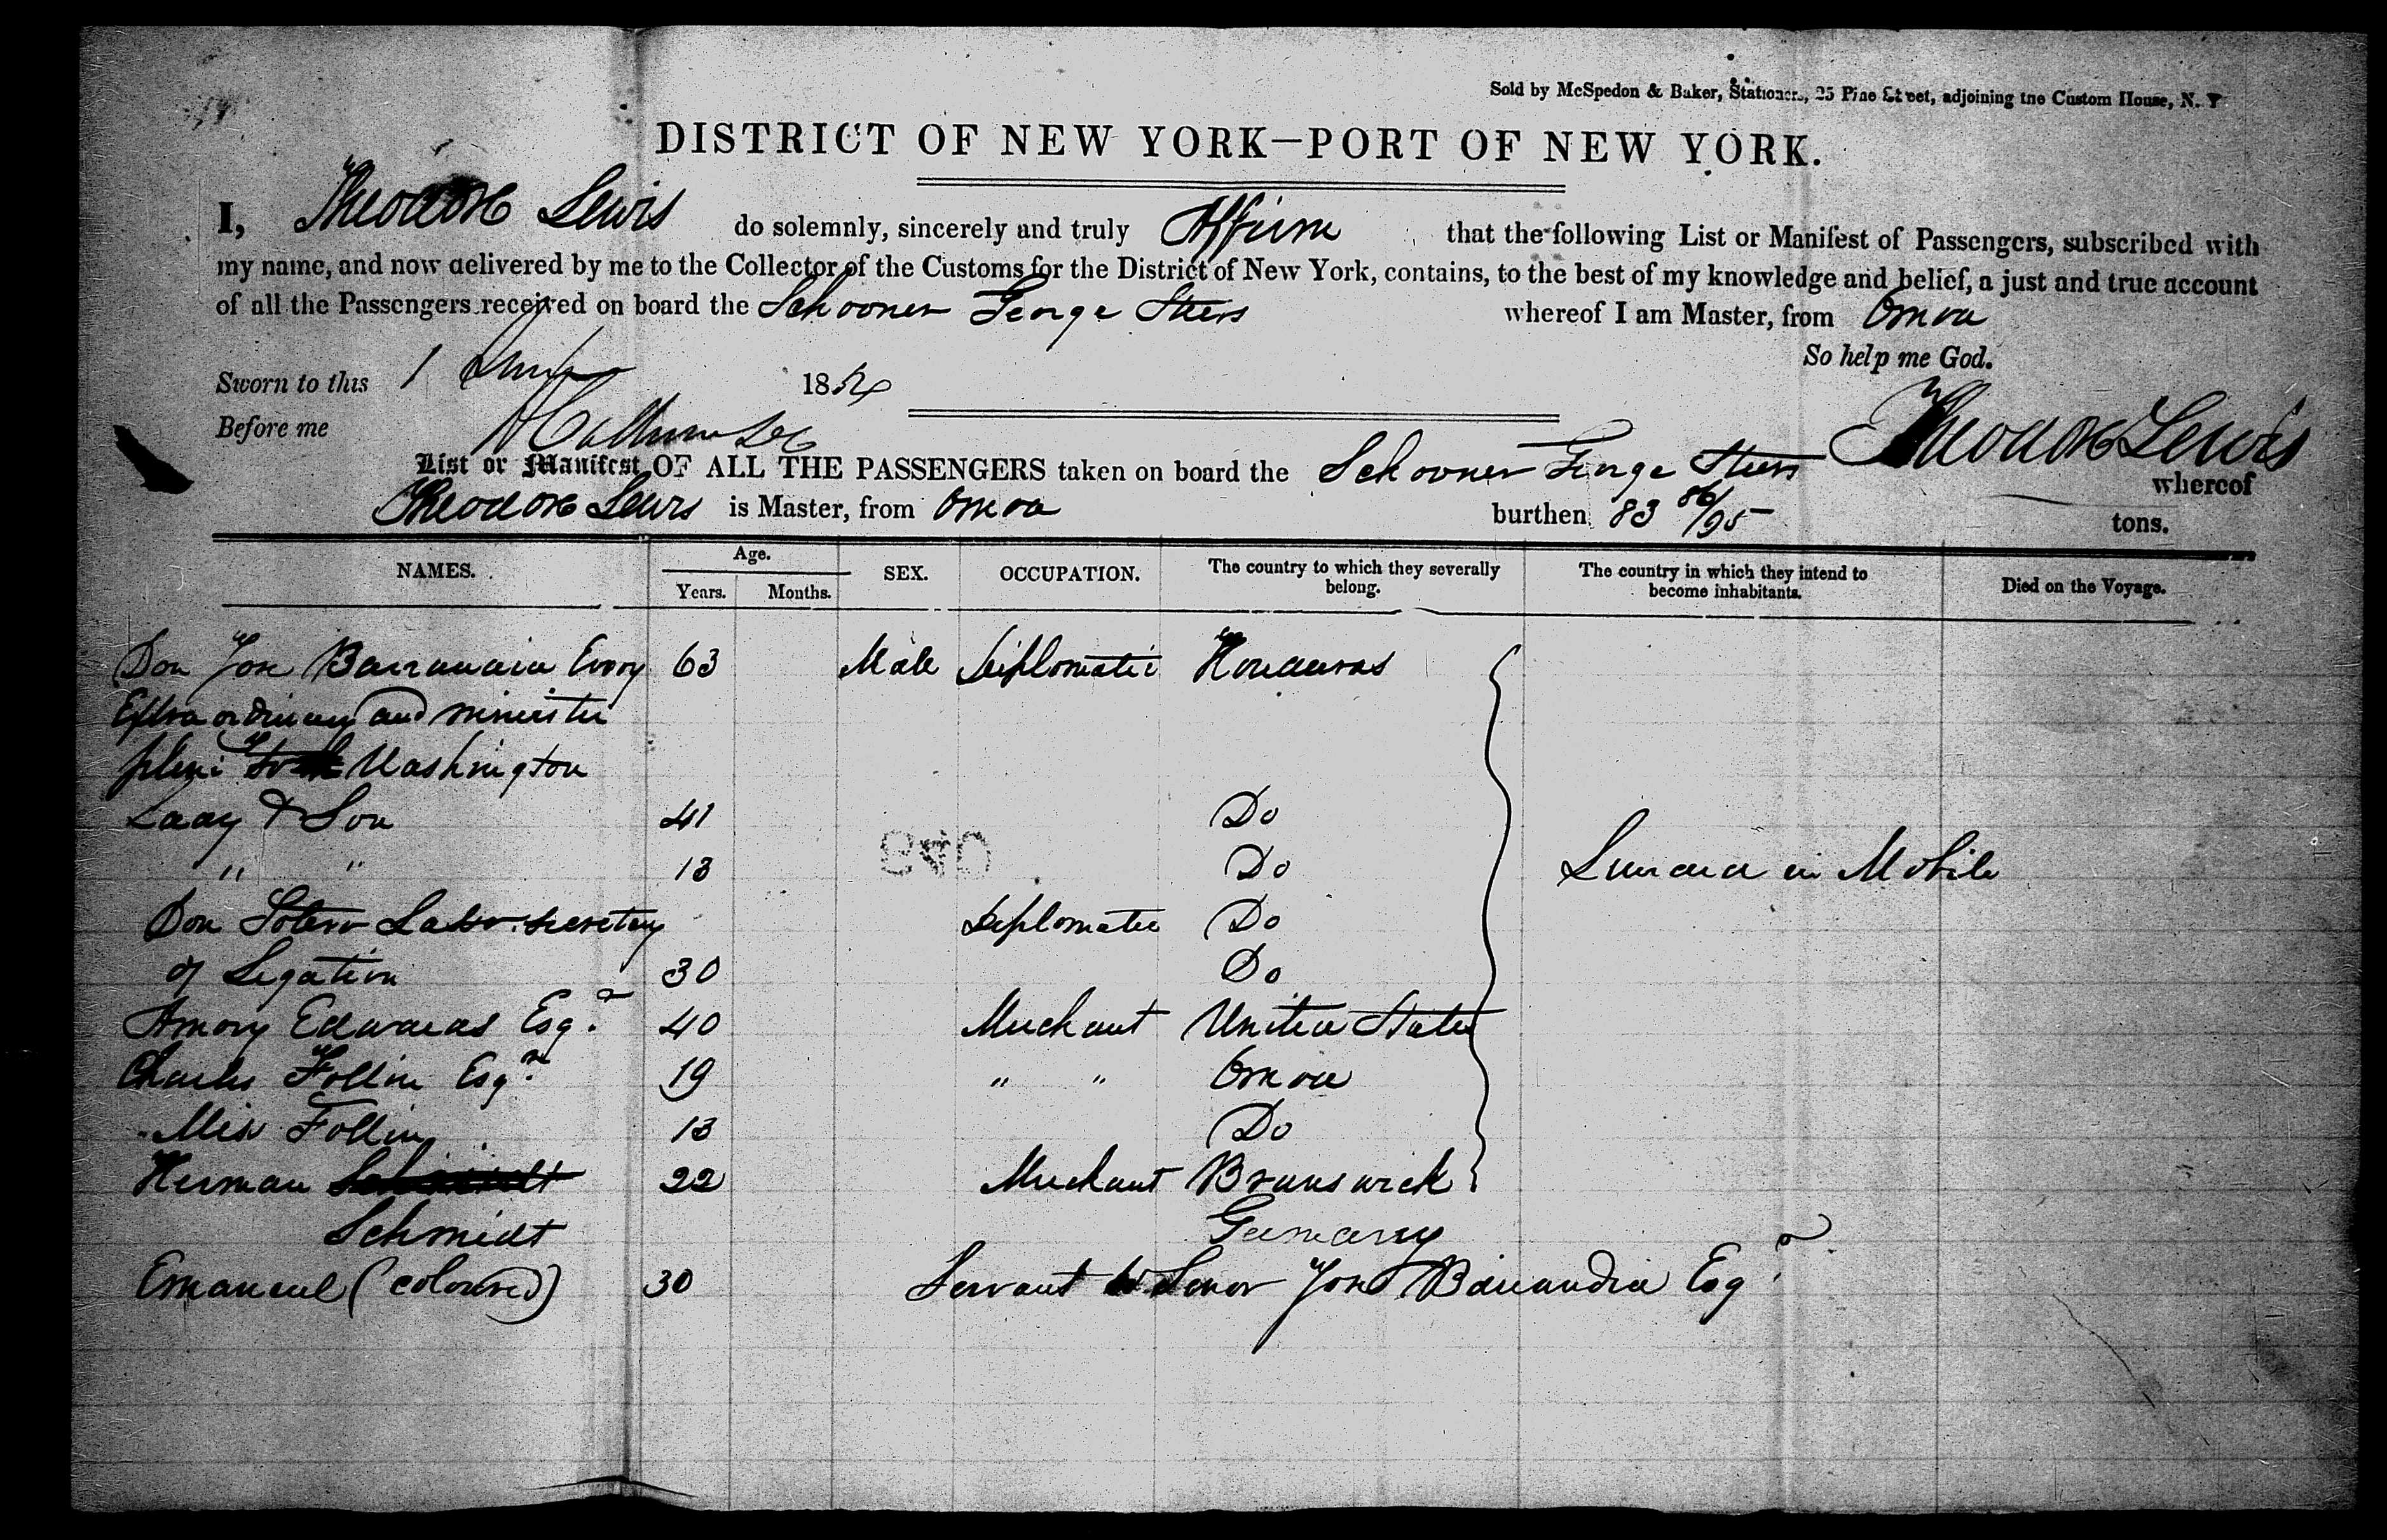 Sold by McSpedon & Baker, Stationers, 25 Pine Street, adjoining the Custom House, N. Y
DISTRICT OF NEW YORK—PORT OF NEW YORK.
I, Theodore Lewis do solemnly, sincerely and truly Affirm that the following List or Manifest of Passengers, subscribed with
my name, and now delivered by me to the Collector of the Customs for the District of New York, contains, to the best of my knowledge and belief, a just and true account
of all the Passengers received on board the Schooner George Steers whereof I am Master, from Omoa
So help me God.
Sworn to this 1 18
Before me
Theodore Lewis
List or Manifest OF ALL THE PASSENGERS taken on board the Schooner George Steers whereof
Theodore Lewis is Master, from Omoa burthen 83 86/95 tons.
NAMES. Age. Years. Months. SEX. OCCUPATION. The country to which they severally belong. The country in which they intend to become inhabitants. Died on the Voyage.
Don Jose Barrandia Envoy 63 Male Diplomatic Honduras
Extraordinary and minister
pleni to Washington
Lady & Son 41 Do
" " 13 Do
Landed in Mobile
Don Sotero Laso secretary Diplomatic Do
of Legation 30 Do
Amory Edwards Esqr 40 Merchant United States
Charles Follin Esqr 19 " " Omoa
Miss Follin 13 Do
Herman 22 Merchant Brunswick
Schmidt Germany
Emanuel (coloured) 30 Servant to Senor Jose Barrandia Esqr